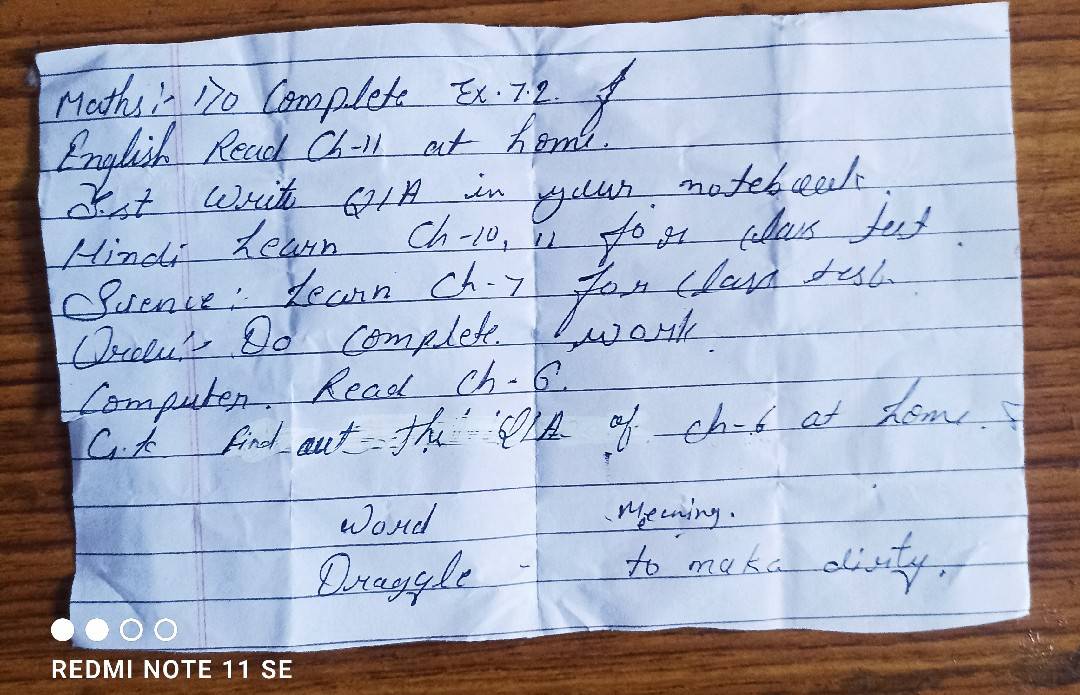 Maths:- Do Complete Ex. 7.2.
English Read Ch-11 at home.
S.st Write Q/A in your notebook.
Hindi Learn Ch-10, 11 for class test.
Science:- Learn Ch-7 for class test.
Ordu:- Do complete work.
Computer. Read Ch-6.
G.k find out the Q/A of ch-6 at home.
Word Meening.
Draggle - to maka dirty.
REDMI NOTE 11 SE